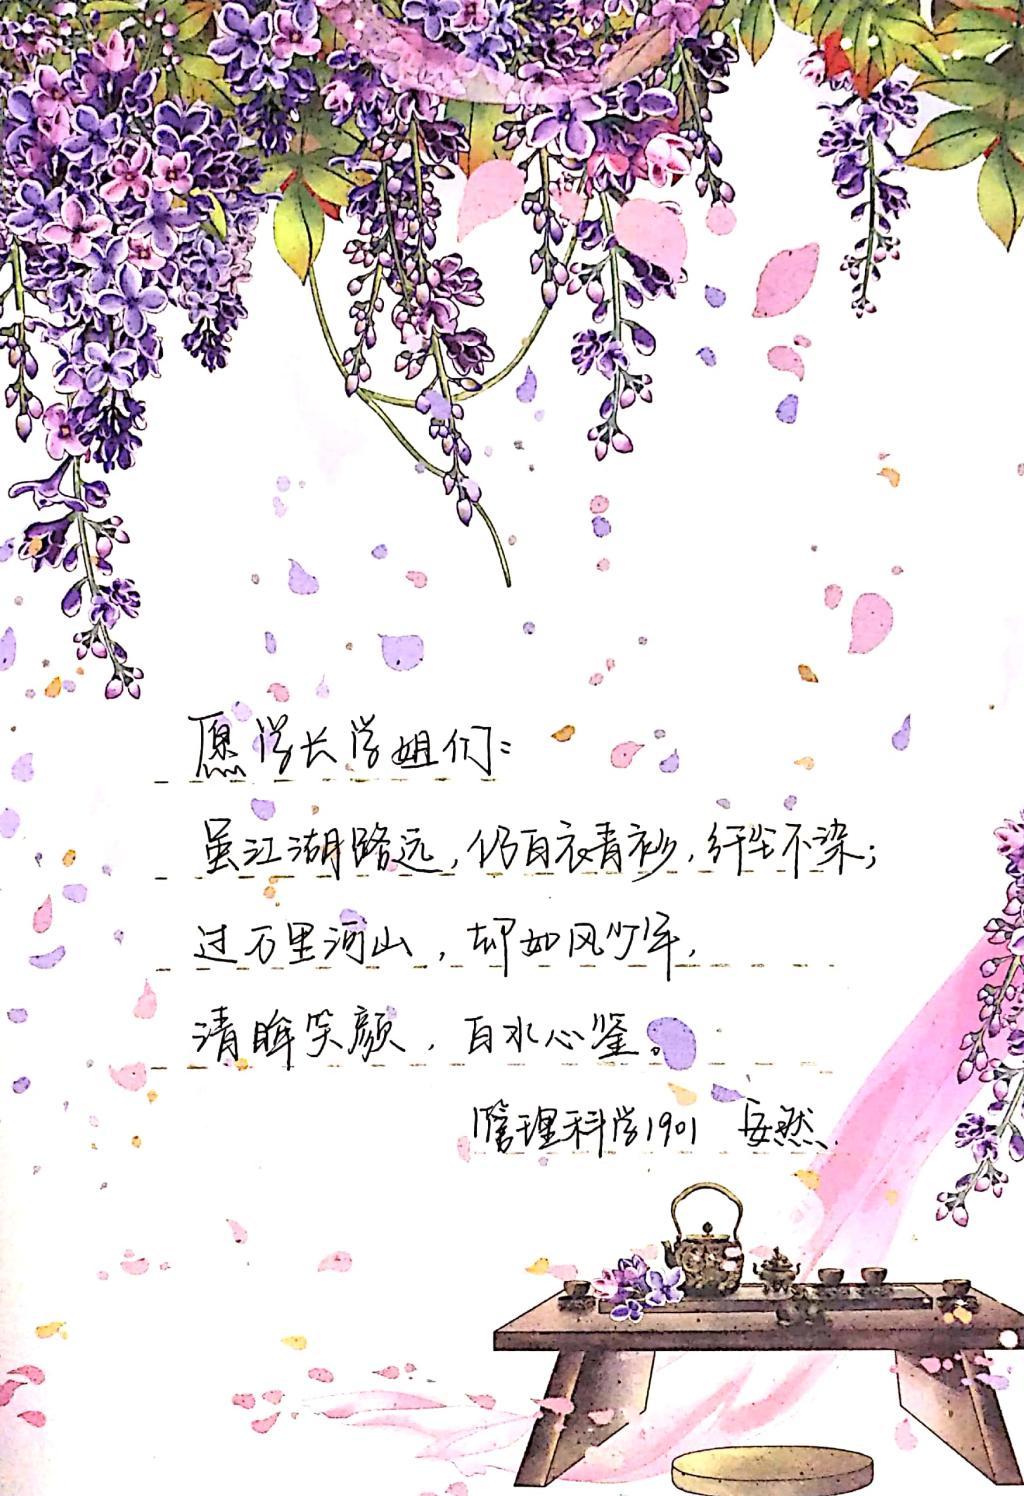 愿学长学姐们：
虽江湖路远，仍白衣青衫，纤尘不染；
过万里河山，却如风少年，
清眸笑颜，白水心鉴。
管理科学1901 安然